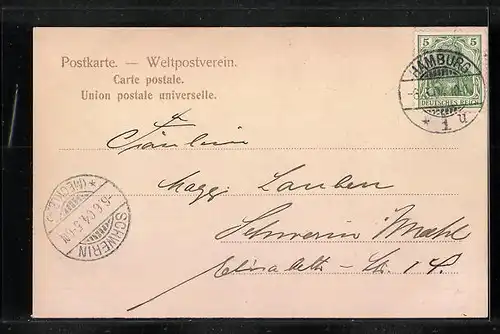 Postkarte. — Weltpostverein.
Carte postale.
Union postale universelle.
5 5
HAMBURG
DEUTSCHES REICH
* 1 u
Fräulein
Magg. Lauben
Schwerin Meckl.
Elisabeth-Str. 14.
SCHWERIN
(MECKL)